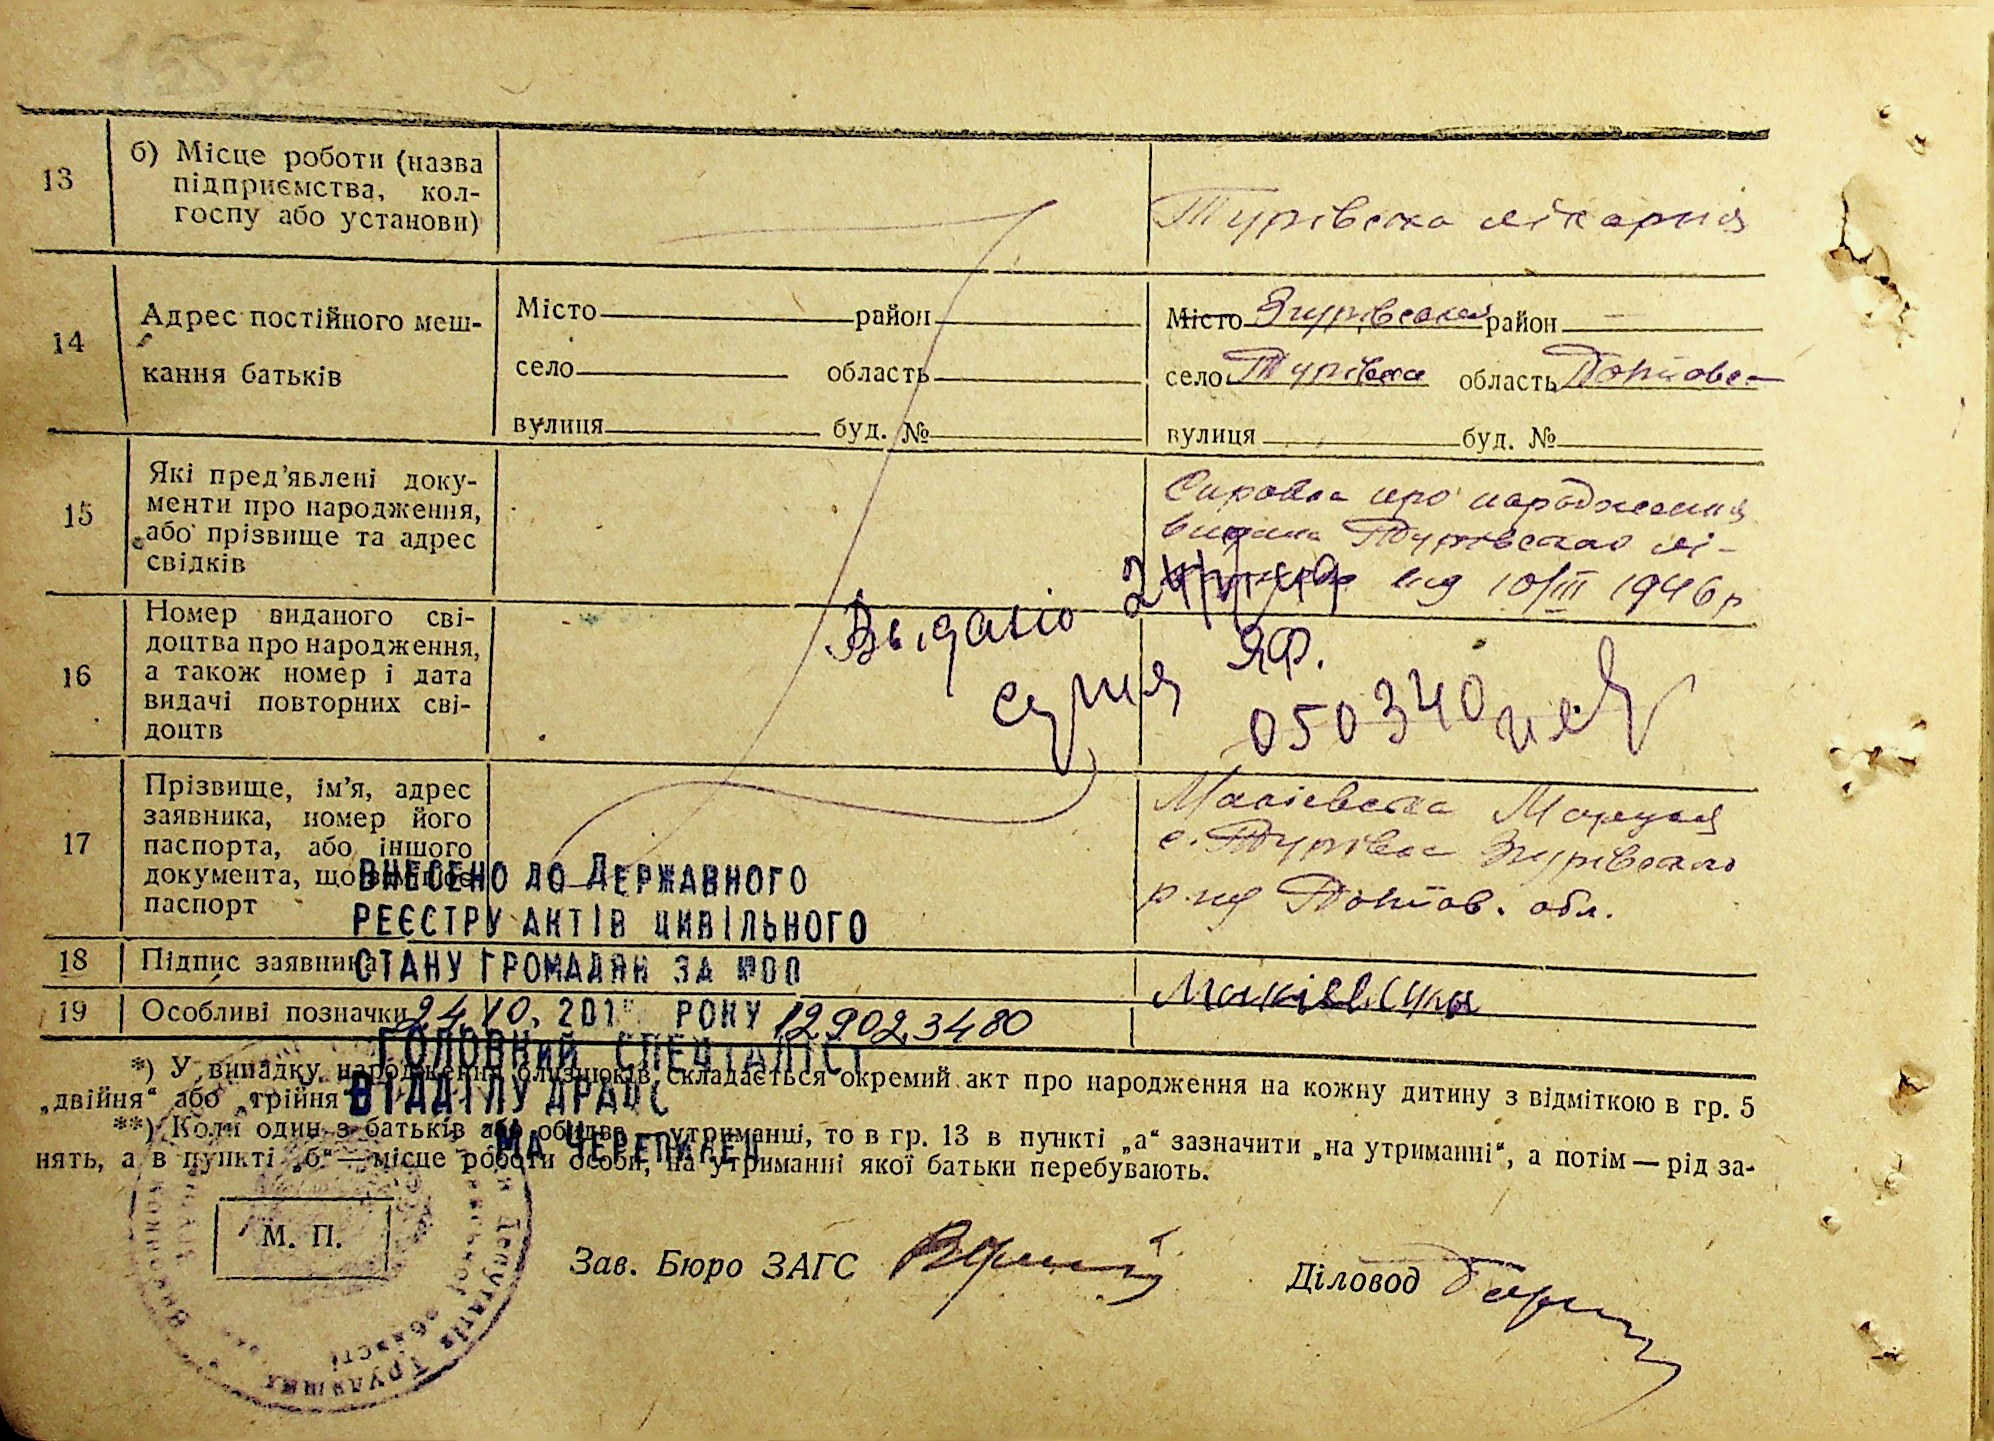 13
б) Місце роботи (назва
підприємства, кол-
госпу або установи)
Турівська лікарня
14
Адрес постійного меш-
кання батьків
Місто район
село область
вулиця буд. №
Місто Згурівський район
село Турівка область Полтавс-
вулиця буд. №
15
Які пред’явлені доку-
менти про народження,
або прізвище та адрес
свідків
Справка про народження
видана Турівською лі-
від 10/III 1946 р
16
Номер виданого сві-
доцтва про народження,
а також номер і дата
видачі повторних сві-
доцтв
Видано
серия ЯФ.
050340
17
Прізвище, ім’я, адрес
заявника, номер його
паспорта, або іншого
документа, що
паспорт
с. Турівка Згурівського
р-ну Полтав. обл.
ВНЕСЕНО ДО ДЕРЖАВНОГО
РЕЄСТРУ АКТІВ ЦИВІЛЬНОГО
СТАНУ ГРОМАДЯН ЗА №00
18
Підпис заявника
19
Особливі позначки
24 10. 201 РОКУ 129023480
ГОЛОВНИЙ СПЕЦІАЛІСТ
ВІДДІЛУ ДРАЦС
*) У випадку народження близнюків складається окремий акт про народження на кожну дитину з відміткою в гр. 5
„двійня“ або „трійня“
**) Коли один з батьків або обидва — утриманці, то в гр. 13 в пункті „а“ зазначити „на утриманні“, а потім — рід за-
нять, а в пункті „б“ — місце роботи особи, на утриманні якої батьки перебувають.
М. П.
Зав. Бюро ЗАГС
Діловод